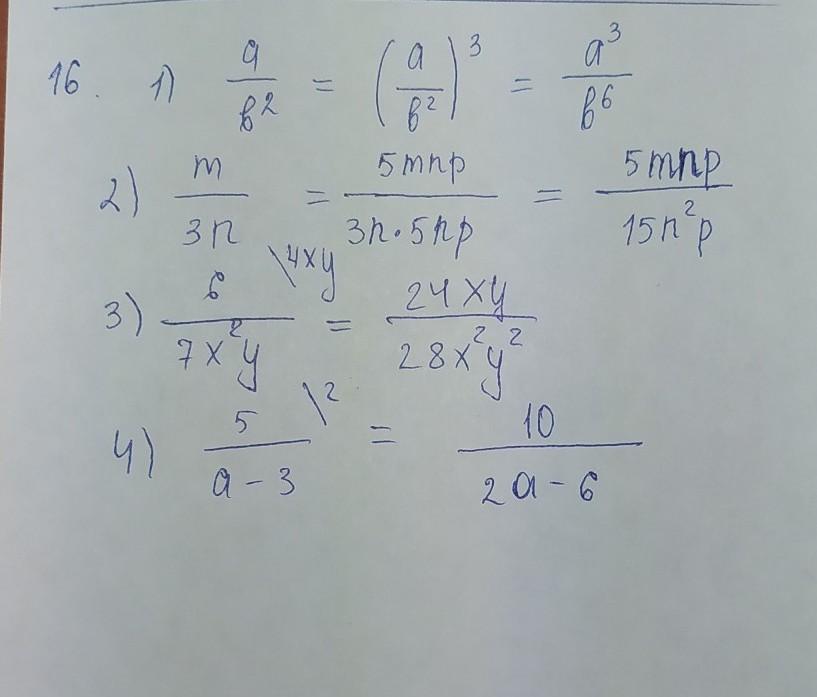 16. 1) a/b² = (a/b²)³ = a³/b⁶
2) m/3n = 5mnp/3n·5np = 5mnp/15n²p
3) 6/7x²y \4xy = 24xy/28x²y²
4) 5/a-3 \2 = 10/2a-6